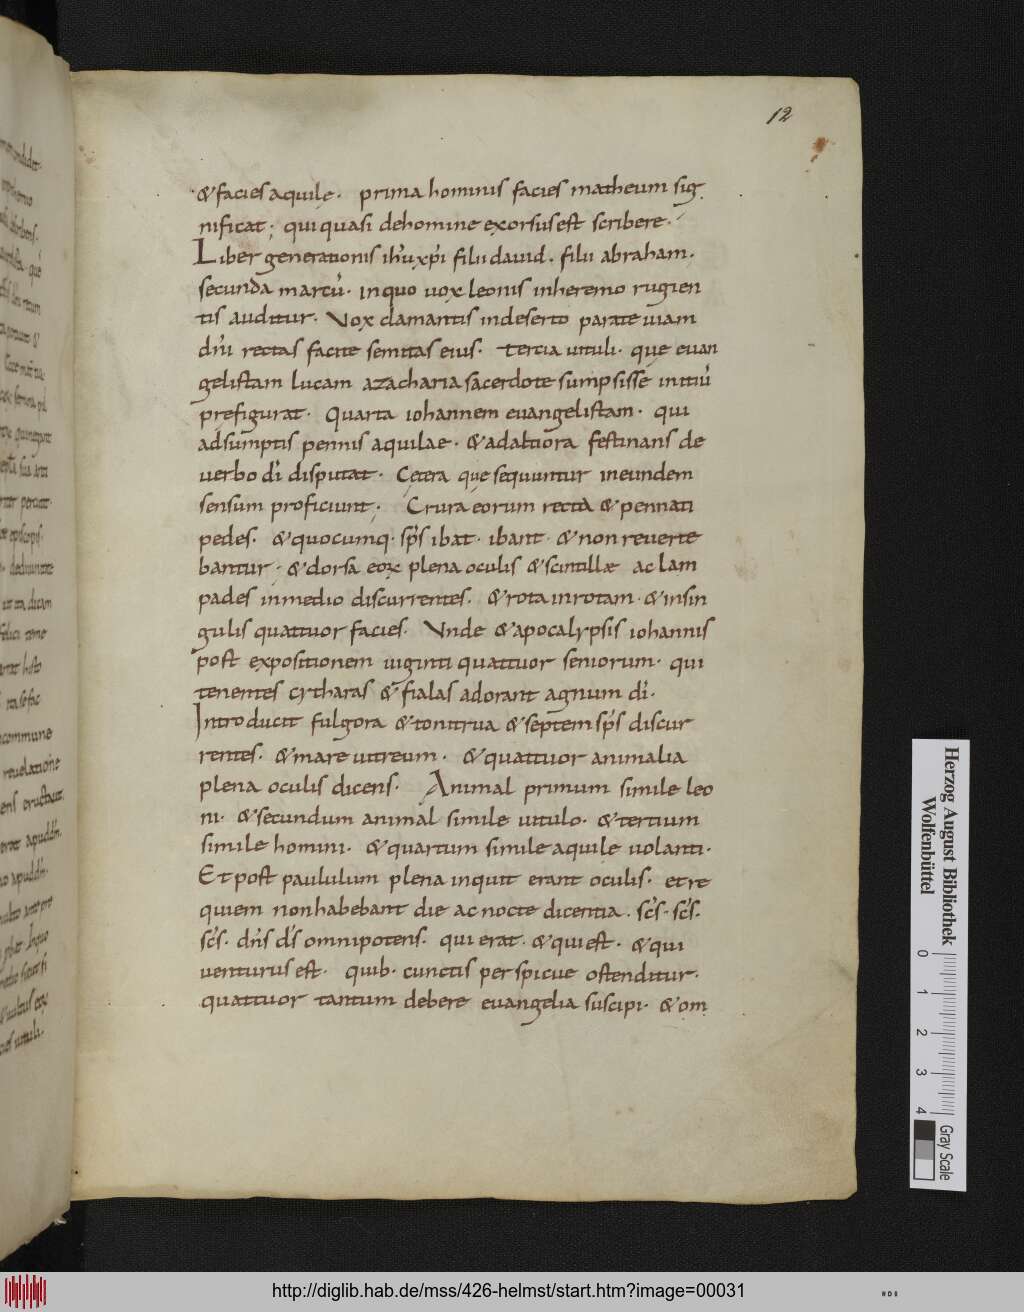 12
& facies aquilę. prima hominis facies matheum sig
nificat; qui quasi de homine exorsus est scribere.
Liber generationis ihu xpi filii dauid. filii abraham.
secunda marcū. in quo uox leonis in heremo rugien
tis auditur. Vox clamantis in deserto parate uiam
dni rectas facite semitas eius. tercia uituli. quę euan
gelistam lucam a zacharia sacerdote sumpsisse initiū
pręfigurat. Quarta iohannem euangelistam. qui
adsumptis pennis aquilae. & ad altiora festinans de
uerbo dī disputat. Cętera quę sequuntur in eundem
sensum proficiunt; Crura eorum recta & pennati
pedes. & quocumq; sps ibat. ibant. & non reuerte
bantur; & dorsa eoꝝ plena oculis & scintillæ ac lam
pades in medio discurrentes. & rota in rotam. & in sin
gulis quattuor facies. Vnde & apocalypsis iohannis
post expositionem uiginti quattuor seniorum. qui
tenentes cytharas & fialas adorant agnum dī.
Introducit fulgora & tonitrua & septem sps discur
rentes. & mare uitreum. & quattuor animalia
plena oculis dicens. Animal primum simile leo
ni. & secundum animal simile uitulo. & tertium
simile homini. & quartum simile aquile uolanti.
Et post paululum plena inquit erant oculis. et re
quiem non habebant die ac nocte dicentia. scs. scs.
scs. dns ds omnipotens. qui erat. & qui est. & qui
uenturus est. quib. cunctis perspicue ostenditur.
quattuor tantum debere euangelia suscipi. & om
Herzog August Bibliothek
Wolfenbüttel
0 1 2 3 4
Gray Scale
http://diglib.hab.de/mss/426-helmst/start.htm?image=00031